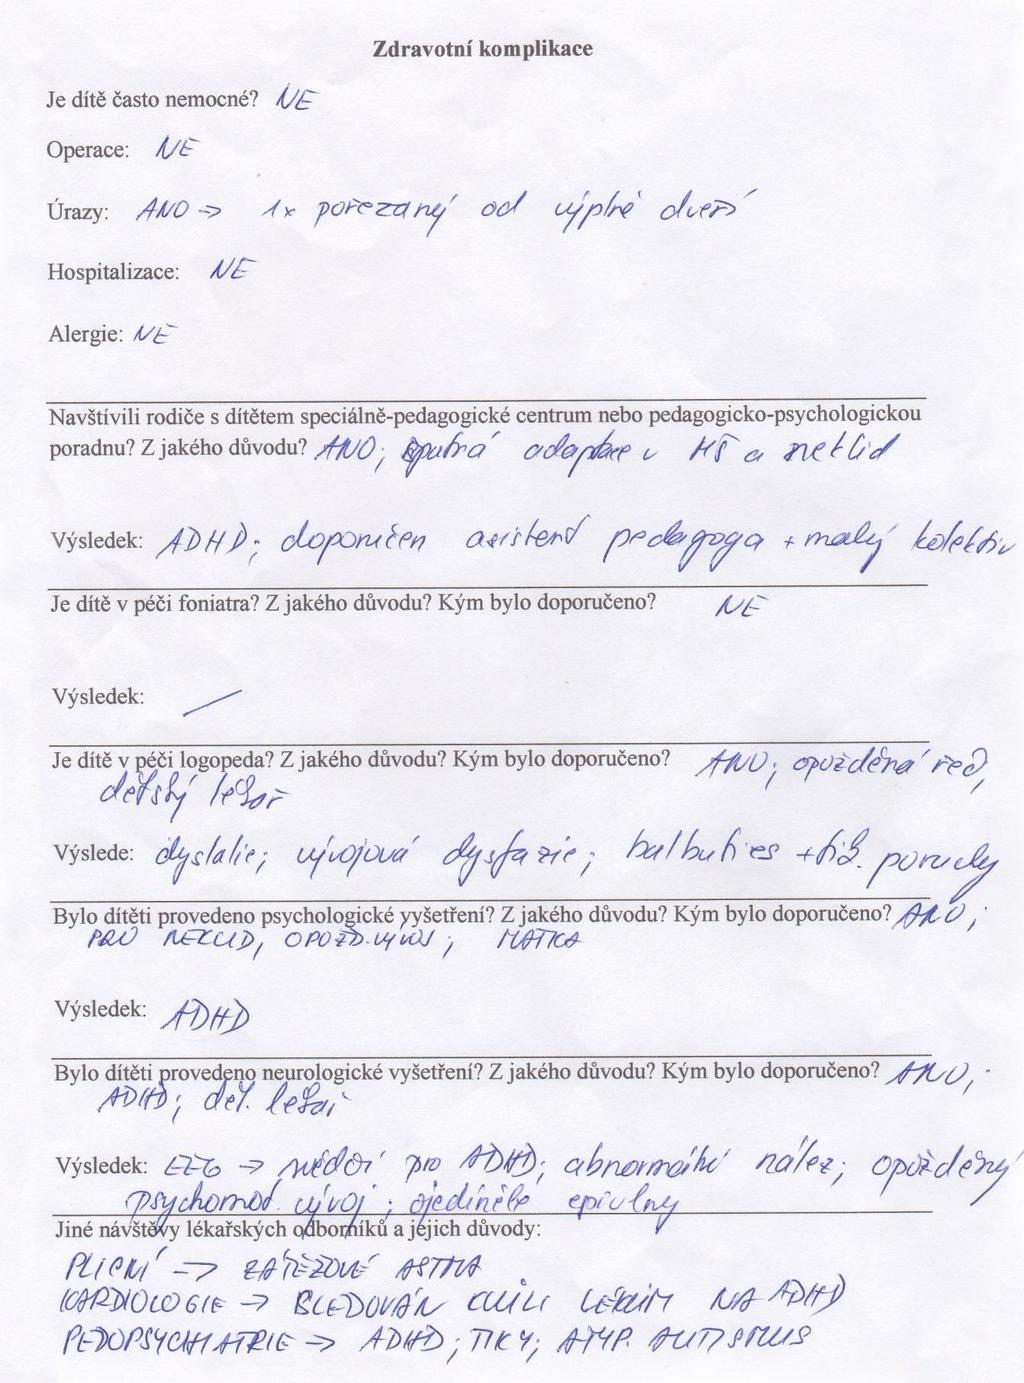 Zdravotní komplikace
Je dítě často nemocné? NE
Operace: NE
Úrazy: ANO → 1x pořezaný od výplně dveří
Hospitalizace: NE
Alergie: NE
Navštívili rodiče s dítětem speciálně-pedagogické centrum nebo pedagogicko-psychologickou
poradnu? Z jakého důvodu? ANO; špatná adaptace v MŠ a neklid
Výsledek: ADHD; doporučen asistent pedagoga + malý kolektiv
Je dítě v péči foniatra? Z jakého důvodu? Kým bylo doporučeno? NE
Výsledek: /
Je dítě v péči logopeda? Z jakého důvodu? Kým bylo doporučeno? ANO; opožděná řeč,
dětský lékař
Výslede: dyslalie; vývojová dysfazie; balbuties + tik. poruchy
Bylo dítěti provedeno psychologické vyšetření? Z jakého důvodu? Kým bylo doporučeno? ANO;
PRO NEKLID, OPOŽD. VÝVOJ; MATKA
Výsledek: ADHD
Bylo dítěti provedeno neurologické vyšetření? Z jakého důvodu? Kým bylo doporučeno? ANO;
ADHD; dět. lékař
Výsledek: EEG → svědčí pro ADHD; abnormální nález; opožděný
psychomot. vývoj; ojediněle epivlny
Jiné návštěvy lékařských odborníků a jejich důvody:
PLICNÍ → ZÁTĚŽOVÉ ASTMA
KARDIOLOGIE → SLEDOVÁN KVŮLI LÉKŮM NA ADHD
PEDOPSYCHIATRIE → ADHD; TIKY; ATYP. AUTISMUS